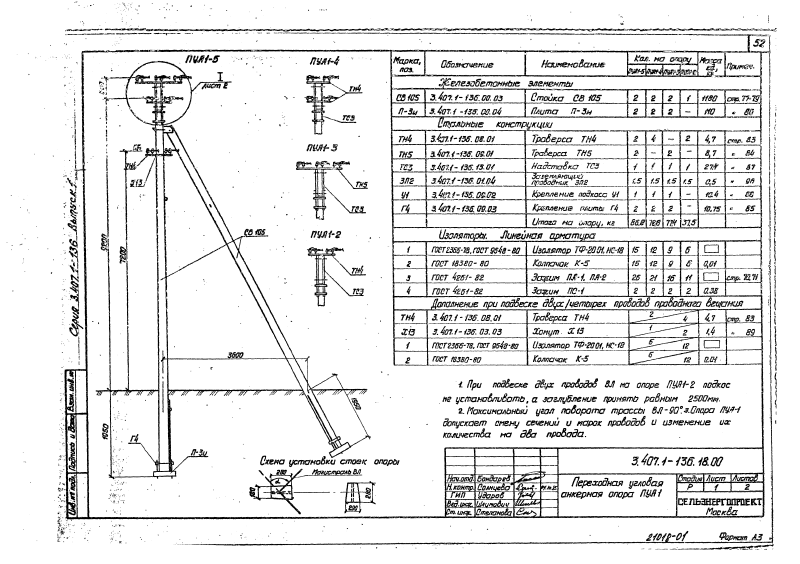 52
Серия 3.407.1-136. Выпуск 1
ПУА1-5
I
лист 2
ПУА1-4
ТН4
ТС3
ПУА1-3
ТН5
ТС3
ПУА1-2
ТН4
ТС3
ТН4
Х13
СВ 105
9200
7200
3600
1950
Г4
П-3и
Схема установки стоек опоры
Магистраль ВЛ
280
200
Марка, поз. Обозначение Наименование Кол. на опору Масса ед., кг Примеч.
ПУА1-5 ПУА1-4 ПУА1-3 ПУА1-2
Железобетонные элементы
СВ 105 3.407.1-136.00.03 Стойка СВ 105 2 2 2 1 1180 стр. 77-79
П-3и 3.407.1-136.00.04 Плита П-3и 2 2 2 – 110 " 80
Стальные конструкции
ТН4 3.407.1-136.08.01 Траверса ТН4 2 4 – 2 4,7 стр. 83
ТН5 3.407.1-136.09.01 Траверса ТН5 2 – 2 – 8,7 " 84
ТС3 3.407.1-136.13.01 Надставка ТС3 1 1 1 1 " 87
ЗП2 3.407.1-136.01.04 Заземляющий проводник ЗП2 1,5 1,5 1,5 1,5 0,5
У1 3.407.1-136.09.02 Крепление подкоса У1 1 1 1 – 12,4
Г4 3.407.1-136.09.03 Крепление плиты Г4 2 2 2 – 10,75 " 85
Итого на опору, кг
Изоляторы. Линейная арматура
1 ГОСТ 2366-78, ГОСТ 9648-80 Изолятор ТФ-20.01, НС-18 15 12 9 6
2 ГОСТ 18380-80 Колпачок К-5 15 12 9 6 0,01
3 ГОСТ 4261-82 Зажим ПА-1, ПА-2 26 21 16 11 стр. 70,71
4 ГОСТ 4261-82 Зажим ПС-1 2 2 2 2 0,38
Дополнение при подвеске двух/четырех проводов проводного вещания
ТН4 3.407.1-136.08.01 Траверса ТН4 2/4 4,7 стр. 83
Х13 3.407.1-136.03.03 Хомут Х13 1/2 1,4 " 89
1 ГОСТ 2366-78, ГОСТ 9648-80 Изолятор ТФ-20.01, НС-18 6/12
2 ГОСТ 18380-80 Колпачок К-5 6/12 0,01
1. При подвеске двух проводов ВЛ на опоре ПУА1-2 подкос
не устанавливать, а заглубление принять равным 2500мм.
2. Максимальный угол поворота трассы ВЛ-90°. Опора ПУА-1
допускает смену сечений и марок проводов и изменение их
количества на два провода.
3.407.1-136.18.00
Нач.отд. Бондарев
Н.контр. Солнцева
ГИП Ударов
Вед.инж. Шкинович
Ст. инж. Степанова
Переходная угловая
анкерная опора ПУА1
Стадия Лист Листов
Р 2
СЕЛЬЭНЕРГОПРОЕКТ
Москва
Инв.№ подл. Подпись и дата Взам.инв.№
21018-01
Формат А3